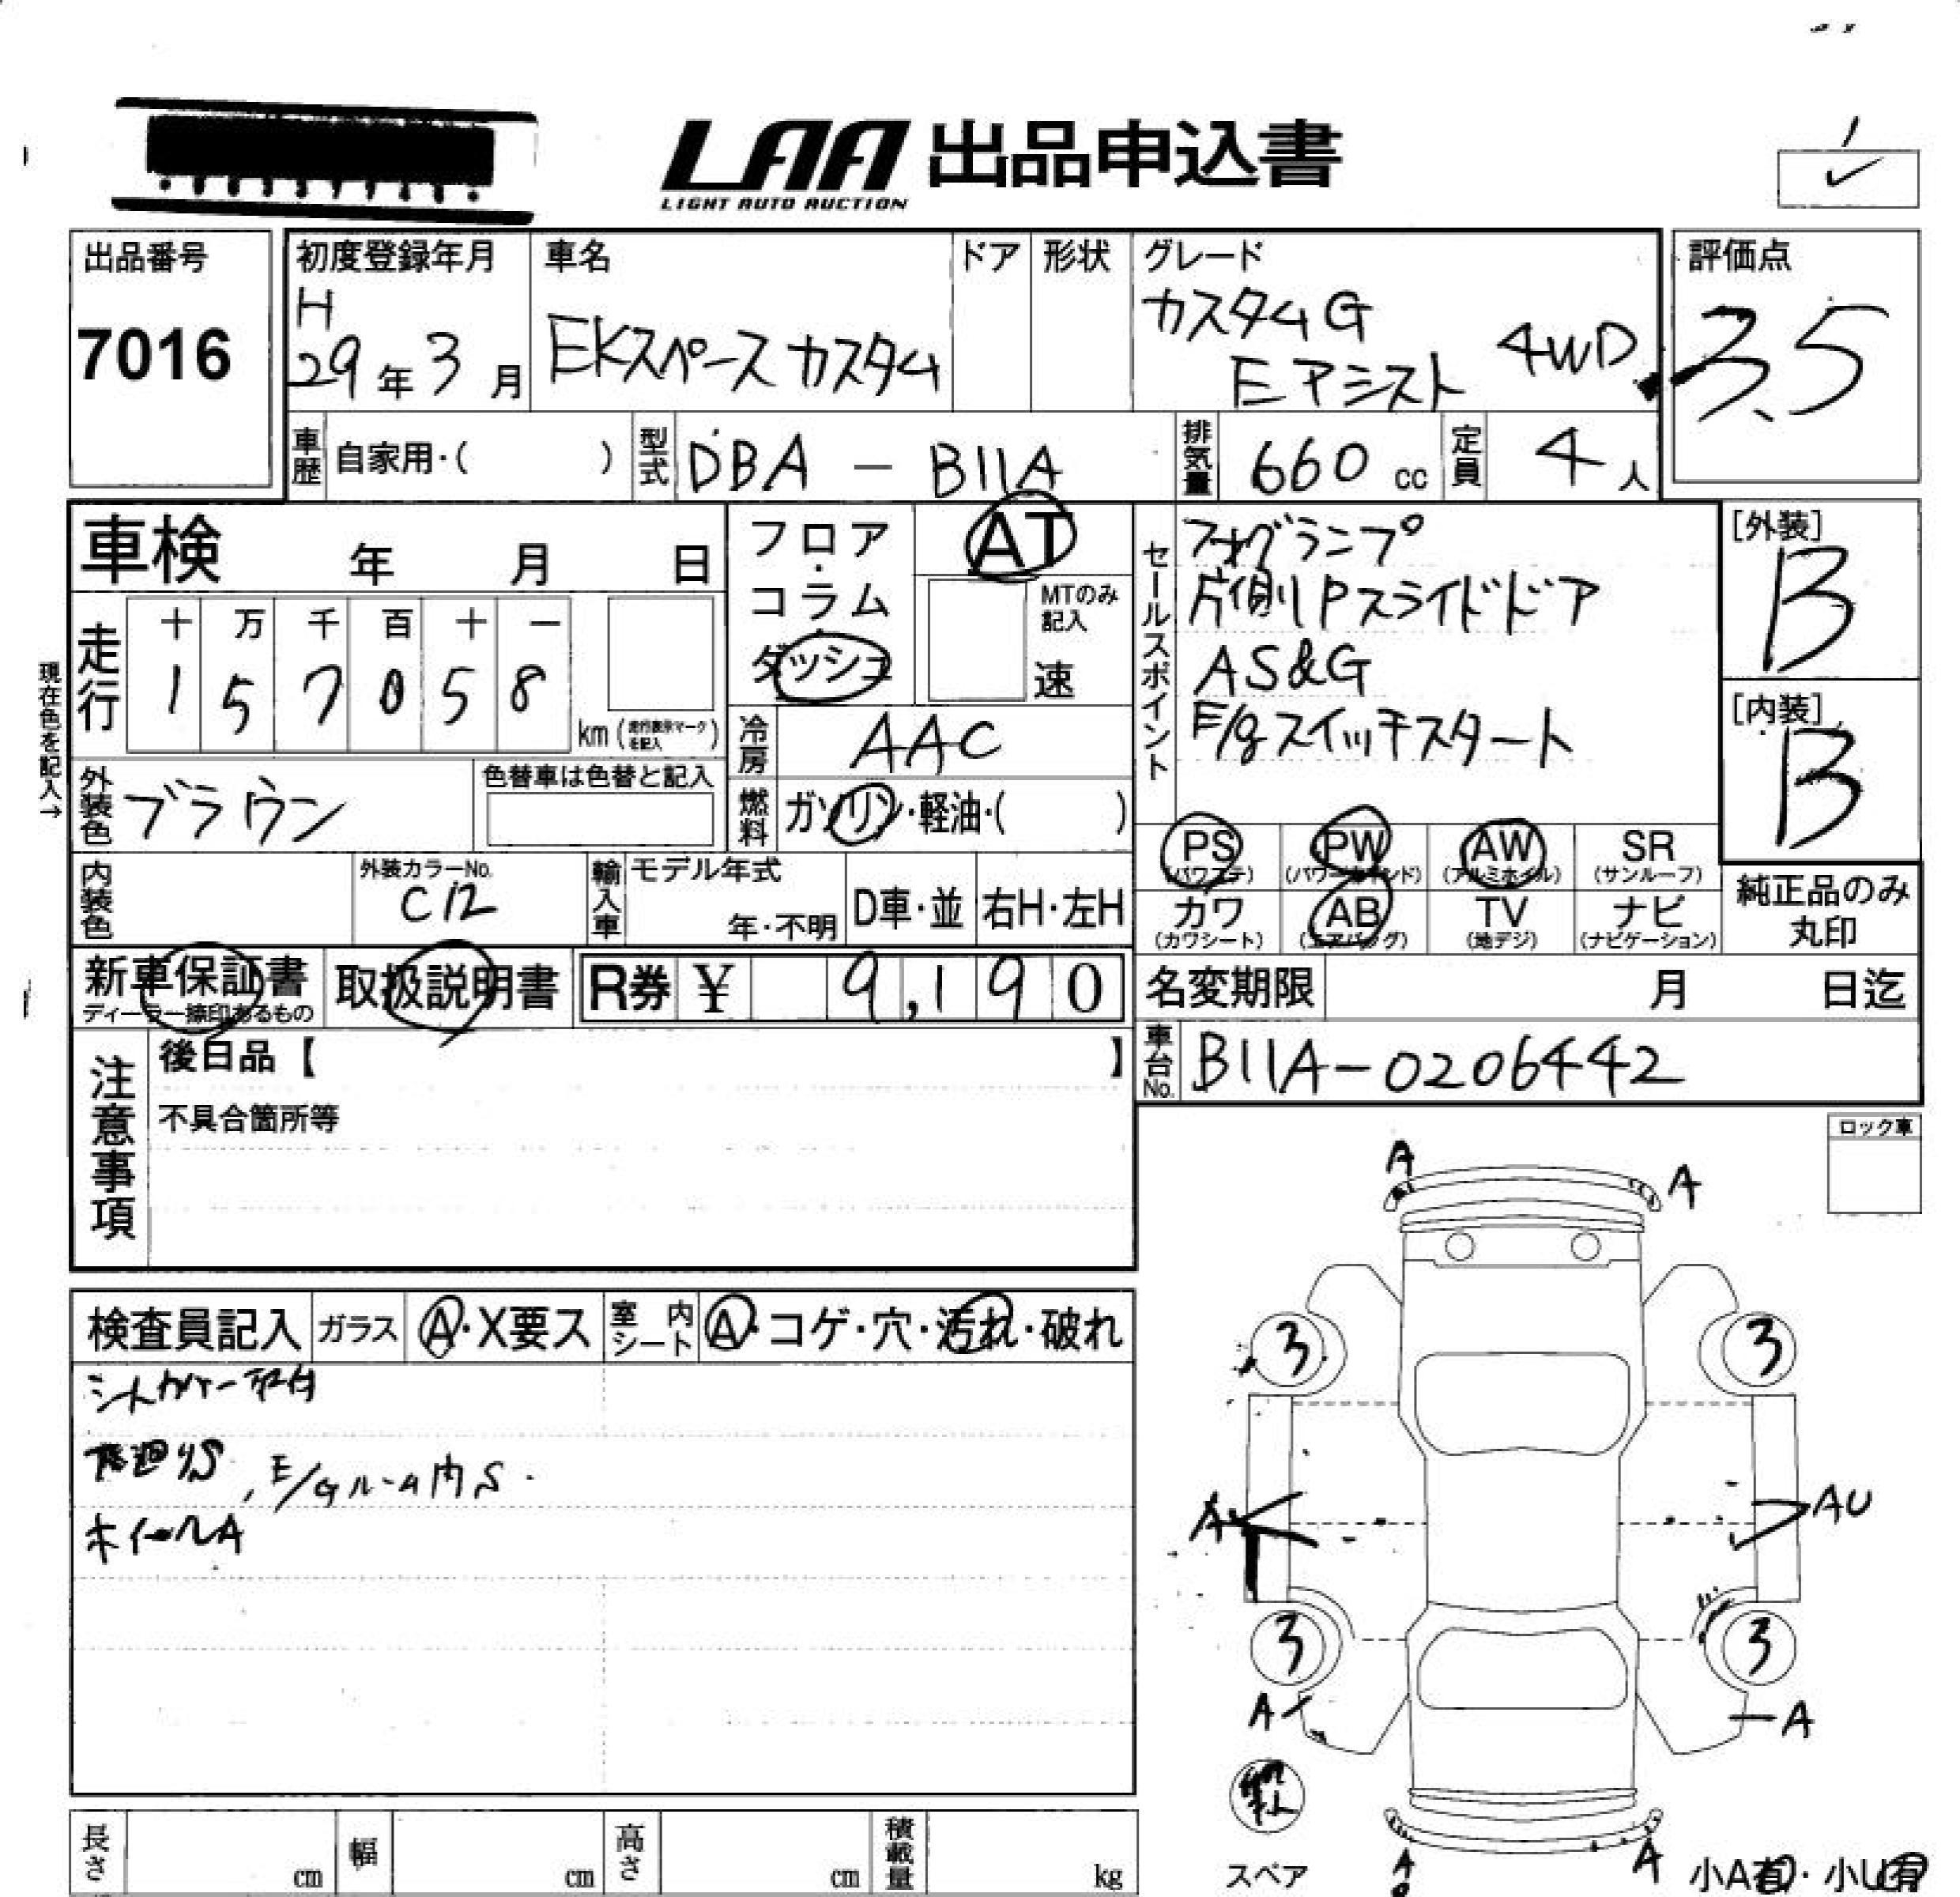 LAA 出品申込書
LIGHT AUTO AUCTION
出品番号
7016
初度登録年月
H
29年3月
車名
EKスペースカスタム
ドア
形状
グレード
カスタムG
Eアシスト 4WD
評価点
3.5
車歴 自家用・( )
型式 DBA - B11A
排気量 660 cc
定員 4 人
車検 年 月 日
フロア・コラム・ダッシュ
AT
MTのみ記入
速
現在色を記入→
走行
十 万 千 百 十 一
1 5 7 0 5 8
km (走行表示マークを記入)
冷房 AAC
外装色 ブラウン
色替車は色替と記入
燃料 ガソリン・軽油・( )
内装色
外装カラーNo.
C12
輸入車
モデル年式
年・不明
D車・並
右H・左H
セールスポイント
フォグランプ
片側Pスライドドア
AS&G
E/gスイッチスタート
[外装]
B
[内装]
B
PS (パワステ)
PW (パワーウインド)
AW (アルミホイル)
SR (サンルーフ)
カワ (カワシート)
AB (エアバッグ)
TV (地デジ)
ナビ (ナビゲーション)
純正品のみ
丸印
新車保証書
ディーラー捺印あるもの
取扱説明書
R券 ¥ 9,190
名変期限 月 日迄
車台No. B11A-0206442
注意事項
後日品【 】
不具合箇所等
ロック車
検査員記入
ガラス A・X要ス
室内シート A・コゲ・穴・汚れ・破れ
シートカバー取付
下廻りS, E/Gルーム内S.
ホイールA
A
A
3
3
A
AU
3
3
A
A
A
A
スペア
小A有・小U有
長さ cm
幅 cm
高さ cm
積載量 kg